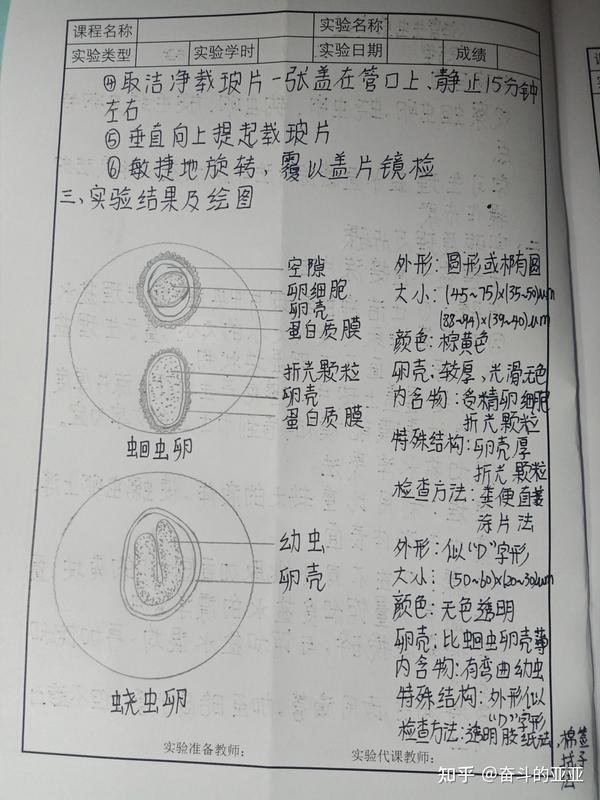 课程名称 实验名称
实验类型 实验学时 实验日期 成绩
④取洁净载玻片一张盖在管口上、静止15分钟
左右
⑤垂直向上提起载玻片
⑥敏捷地旋转,覆以盖片镜检
三、实验结果及绘图
空隙
卵细胞
卵壳
蛋白质膜
折光颗粒
卵壳
蛋白质膜
蛔虫卵
外形:圆形或椭圆
大小:(45~75)×(35~50)μm
(88~94)×(39~40)μm
颜色:棕黄色
卵壳:较厚、光滑无色
内含物:受精卵细胞
折光颗粒
特殊结构:卵壳厚
折光颗粒
检查方法:粪便直接
涂片法
幼虫
卵壳
蛲虫卵
外形:似"D"字形
大小:(50~60)×(20~30)μm
颜色:无色透明
卵壳:比蛔虫卵壳薄
内含物:有弯曲幼虫
特殊结构:外形似
"D"字形
检查方法:透明胶纸法,棉签
拭子
法
实验准备教师: 实验代课教师:
知乎 @奋斗的亚亚